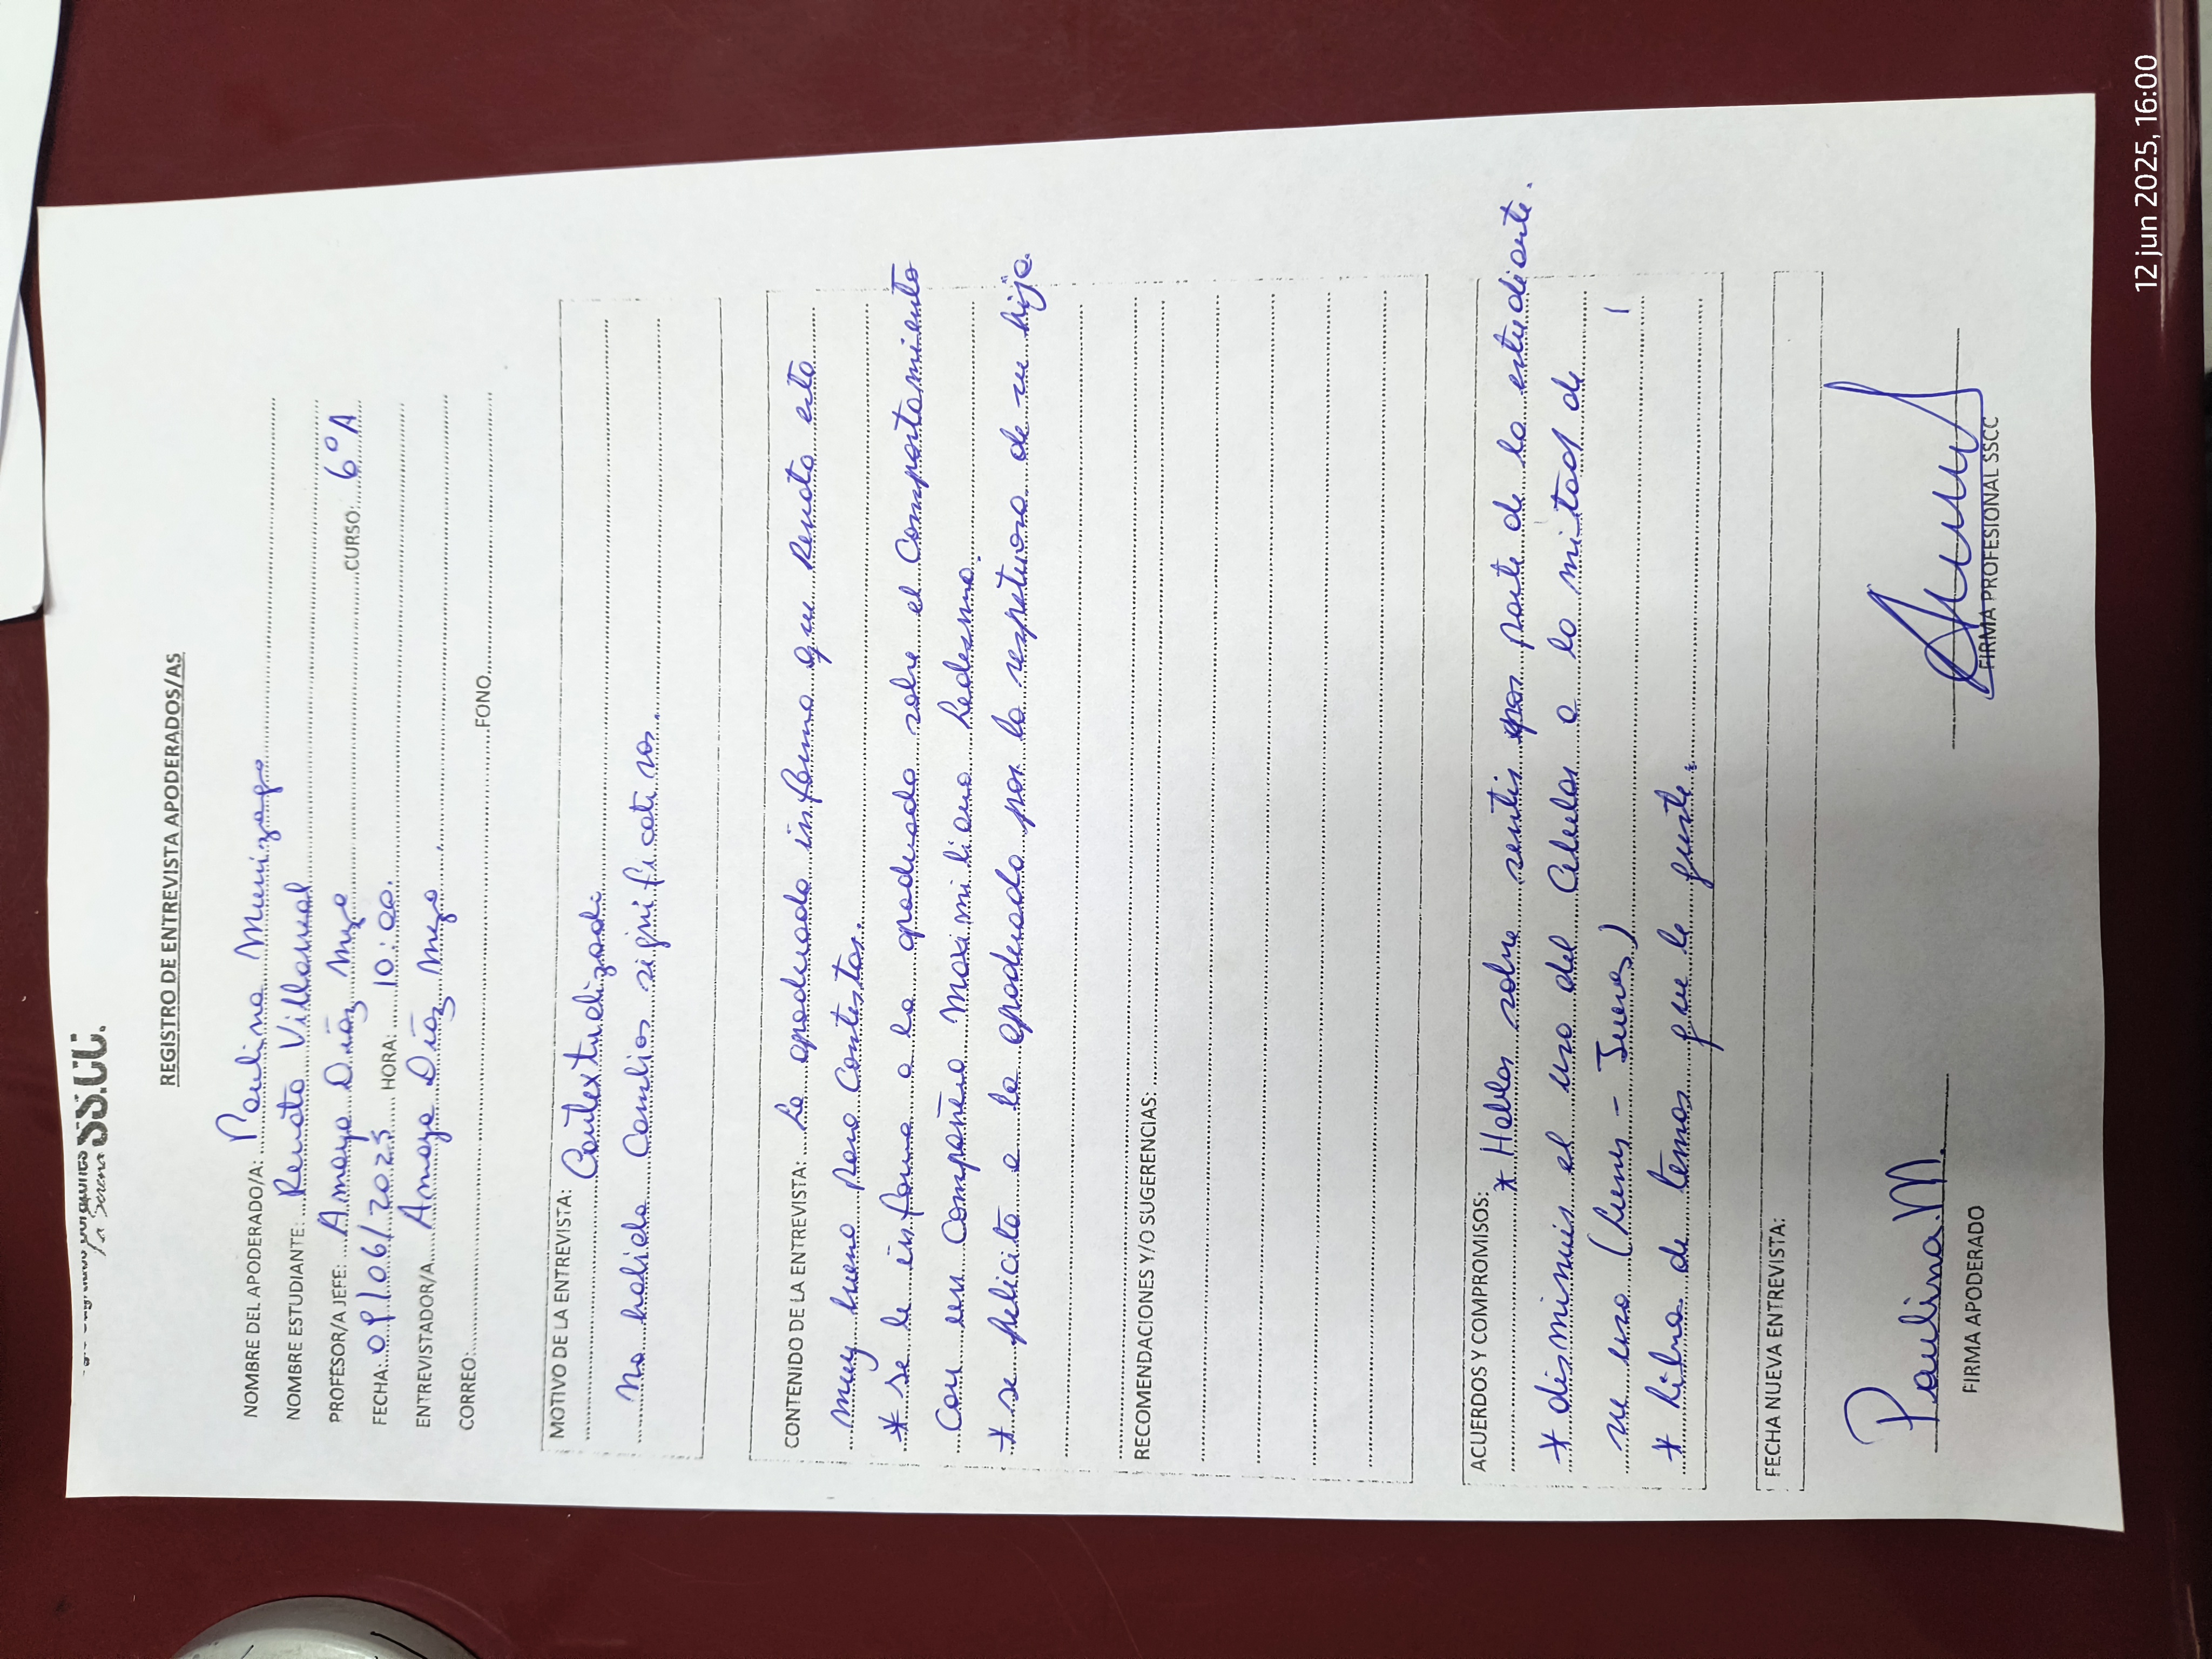 SS.CC.
La Serena
REGISTRO DE ENTREVISTA APODERADOS/AS
NOMBRE DEL APODERADO/A: Paulina Munizaga
NOMBRE ESTUDIANTE: Renata Villarroel
PROFESOR/A JEFE: Amaya Díaz Meza CURSO: 6°A
FECHA: 09/06/2025 HORA: 10:00.
ENTREVISTADOR/A Amaya Díaz Meza
CORREO: FONO
MOTIVO DE LA ENTREVISTA: Contextualizada
No habido cambios significativos.
CONTENIDO DE LA ENTREVISTA: La apoderada informa que Renata esta
muy buena para contestar.
* se le informa a la apoderada sobre el comportamiento
con su compañero Maximiliano Ledezma.
* se felicita a la apoderada por la respetuosa de su hija.
RECOMENDACIONES Y/O SUGERENCIAS:
ACUERDOS Y COMPROMISOS: * Hablar sobre sentir por parte de la estudiante.
* disminuir el uso del celular a la mitad de
su uso (lunes - Jueves)
* libros de temas que le guste.
FECHA NUEVA ENTREVISTA:
Paulina.M.
FIRMA APODERADO
FIRMA PROFESIONAL SSCC
12 jun 2025, 16:00